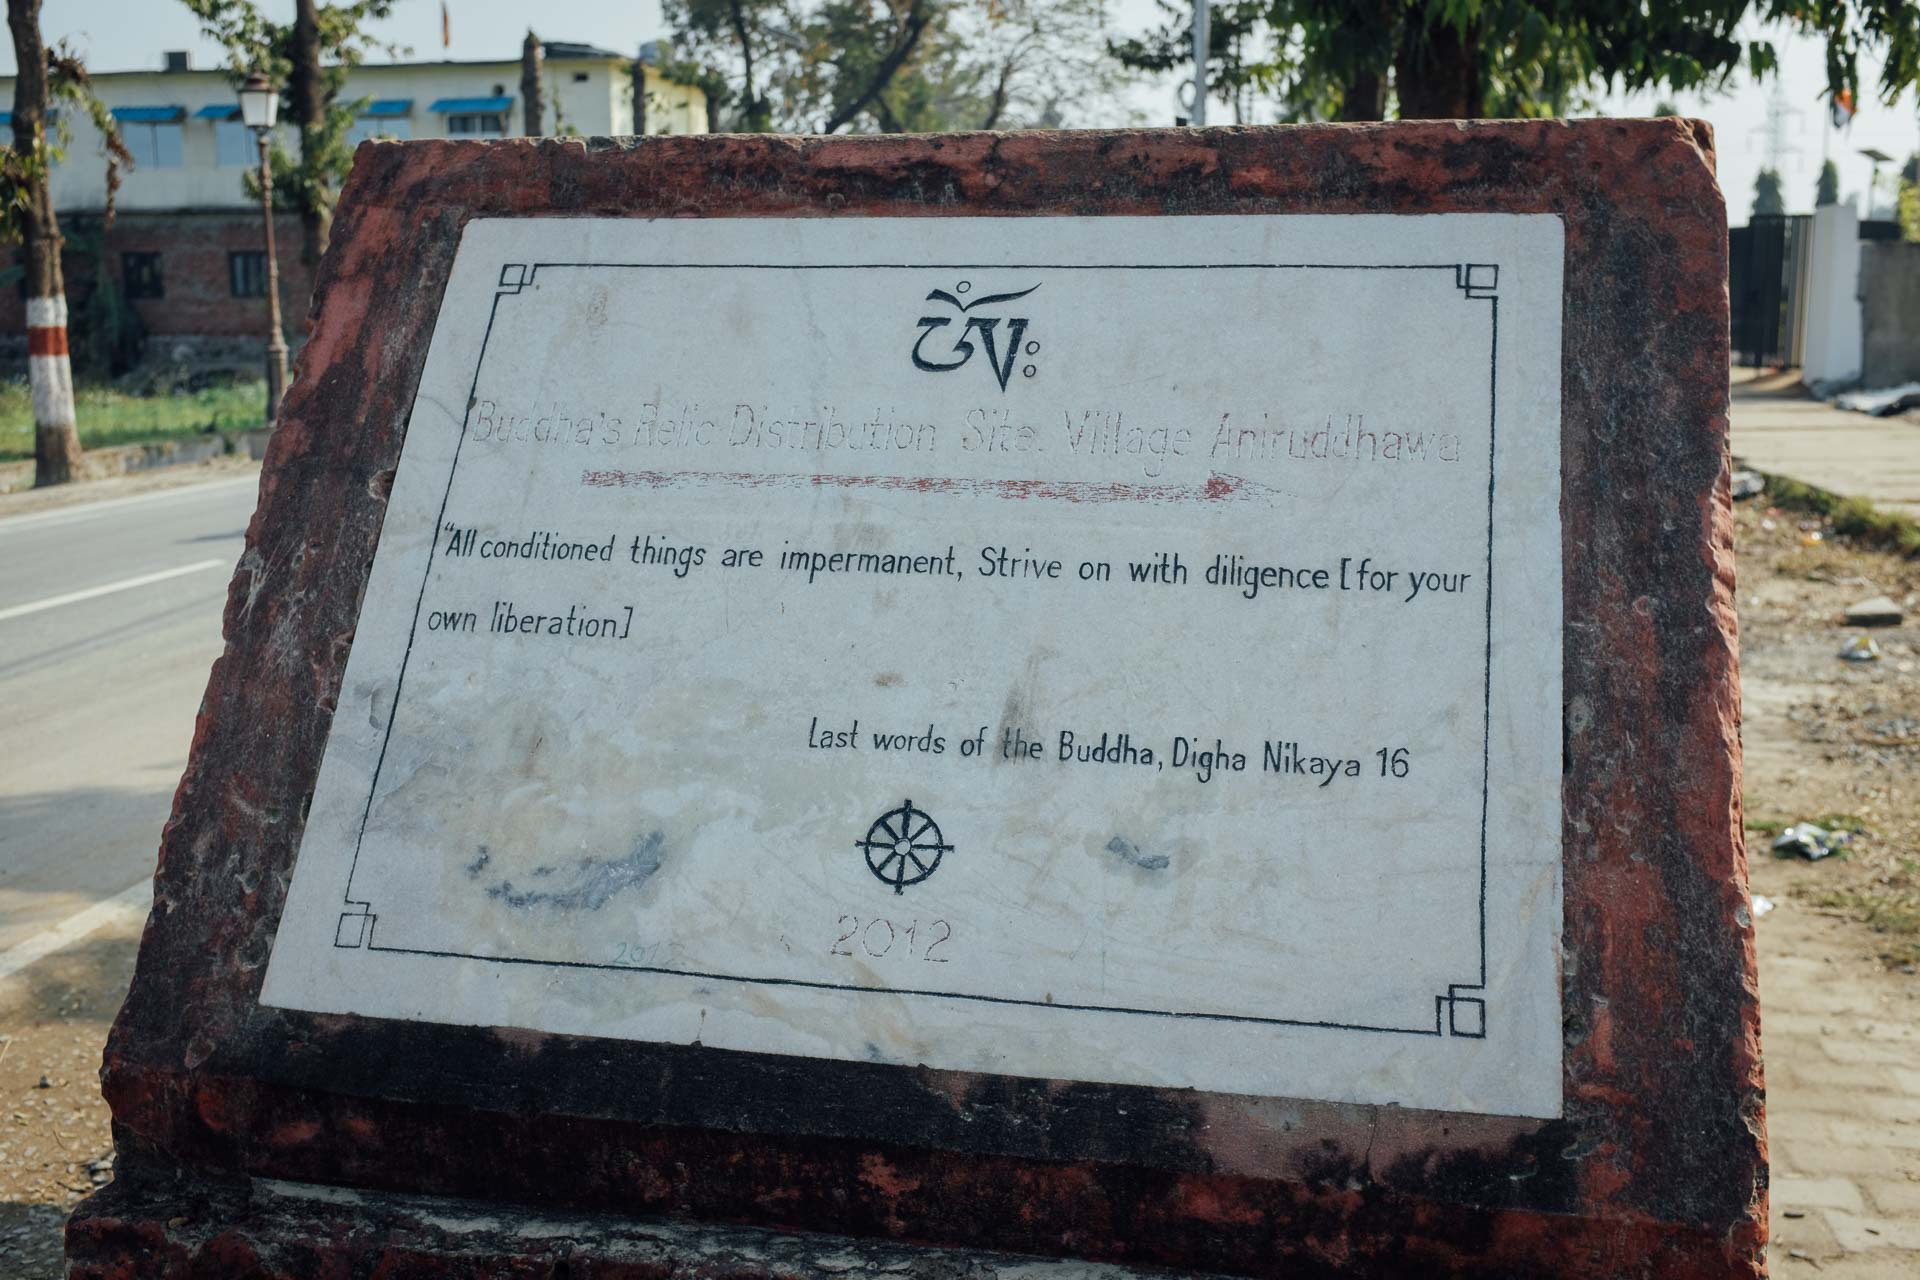 ༀཿ
Buddha's Relic Distribution Site. Village Aniruddhawa
"All conditioned things are impermanent, Strive on with diligence [for your
own liberation]
Last words of the Buddha, Digha Nikaya 16
2012
2012